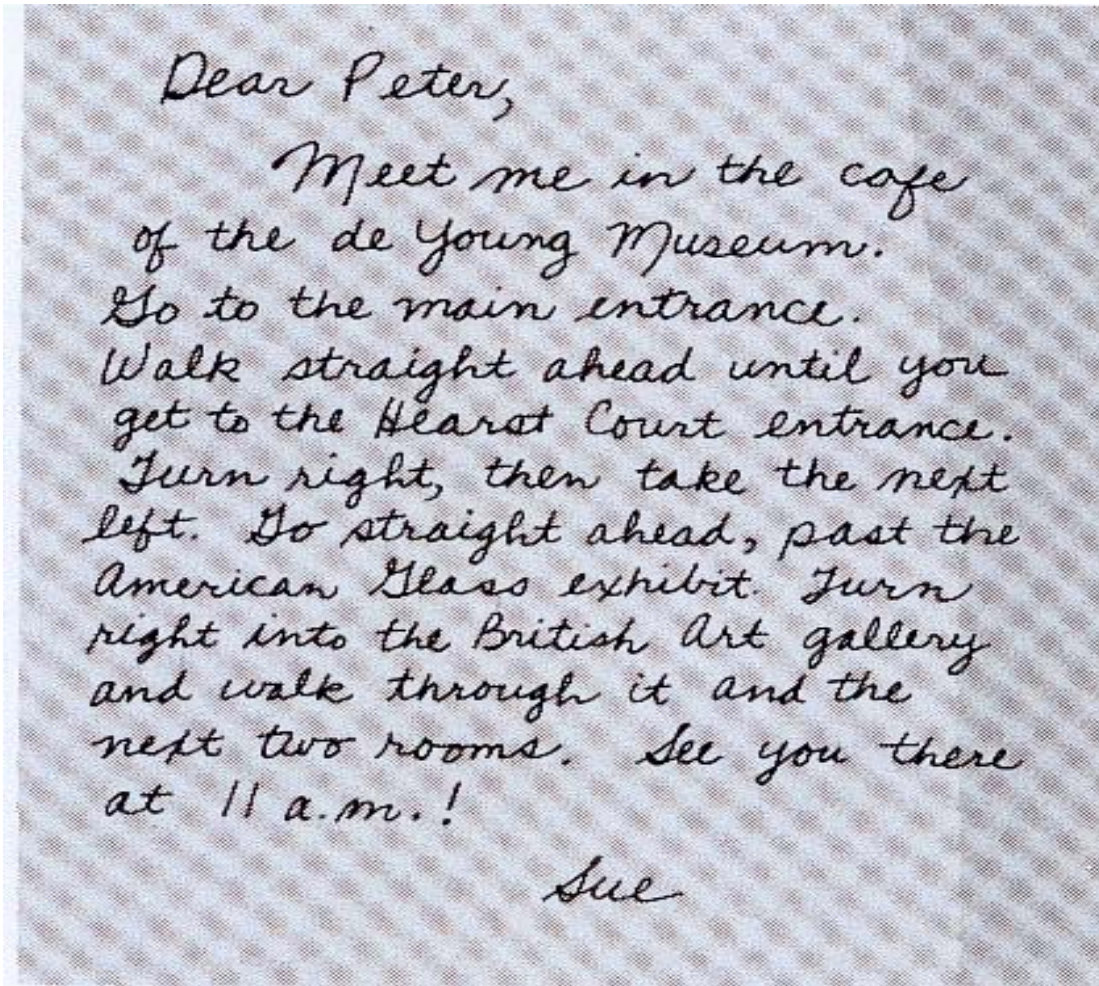 Dear Peter,
Meet me in the cafe
of the de Young Museum.
Go to the main entrance.
Walk straight ahead until you
get to the Hearst Court entrance.
Turn right, then take the next
left. Go straight ahead, past the
American Glass exhibit. Turn
right into the British Art gallery
and walk through it and the
next two rooms. See you there
at 11 a.m.!
Sue